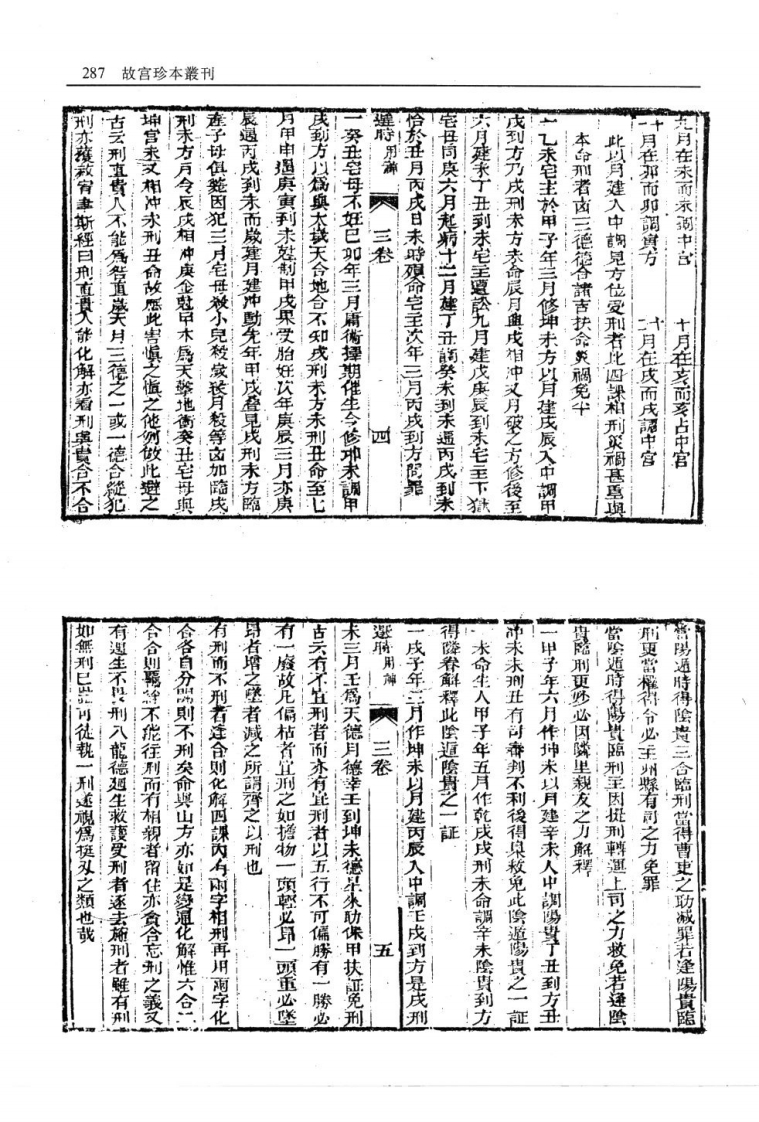 287 故宮珍本叢刊
九月在未而未調中宮 十月在亥而亥占中宮
十一月在卯而卯調寅方 十二月在戌而戌調中宮
此以月建入中調見方位受刑者此四課相刑災禍甚重與
本命刑者凶三德德合諸吉扶命災禍免半
一乙未宅主於甲子年三月修坤未方以月建戊辰入中調甲
戌到方乃戌刑未方未命辰月與戌相冲又月破之方修後至
六月建未丁丑到未宅主遭訟九月建戌庚辰到未宅主下獄
宅母同庚六月起病十二月建丁丑調癸未到未遁丙戌到未
恰於丑月丙戌日未時殞命宅主次年三月丙戌到方問罪
選時用解 三卷 四
一癸丑宅母不妊己卯年三月庸術擇期催生令修坤未調甲
戌到方以為與太歲天合地合不知戌刑未方未刑丑命至七
月甲申遁庚寅到未尅制甲戌果受胎妊次年庚辰三月亦庚
辰遁丙戌到未而歲建月建冲動先年甲戌疊見戌刑未方臨
產子母俱斃因犯三月宅母殺小兒殺歲殺月殺等凶加臨戌
刑未方月令辰戌相冲庚金尅甲木為天擊地衝癸丑宅母與
坤宮未又相冲未刑丑命故應此害慎之慎之他例倣此避之
古云刑直貴人不能為咎直歲天月三德之一或一德合縱犯
刑亦獲赦宥聿斯經曰刑直貴人能化解亦看刑與貴合不合
當陽遁時得陰貴三合臨刑當得曹吏之助減罪若逢陽貴臨
刑更當權得令必主州縣有司之力免罪
當陰遁時得陽貴臨刑主因提刑轉運上司之力救免若逢陰
貴臨刑更妙必因隣里親友之力解釋
一甲子年六月作坤未以月建辛未入中調陽貴丁丑到方丑
冲未未刑丑有司審判不利後得臬救免此陰遁陽貴之一証
一未命生人甲子年五月作乾戌戌刑未命調辛未陰貴到方
得隣眷解釋此陰遁陰貴之一証
一戊子年三月作坤未以月建丙辰入中調壬戌到方是戌刑
選時用解 三卷 五
未三月壬為天德月德幸壬到坤未德星來助保甲扶証免刑
古云有不宜刑者而亦有宜刑者以五行不可偏勝有一勝必
有一廢故凡偏枯者宜刑之如擔物一頭輕必昂一頭重必墜
昂者增之墜者減之所謂齊之以刑也
有刑而不刑者逢合則化解四課內有兩字相刑再用兩字化
合各自分開則不刑矣命與山方亦如是變通化解惟六合二
合合則羈絆不能往刑而有相親者留住亦貪合忘刑之義又
有遇生不畏刑入龍德遁生救護受刑者逐去施刑者雖有刑
如無刑已豈可徒執一刑遂視為挺刄之類也哉